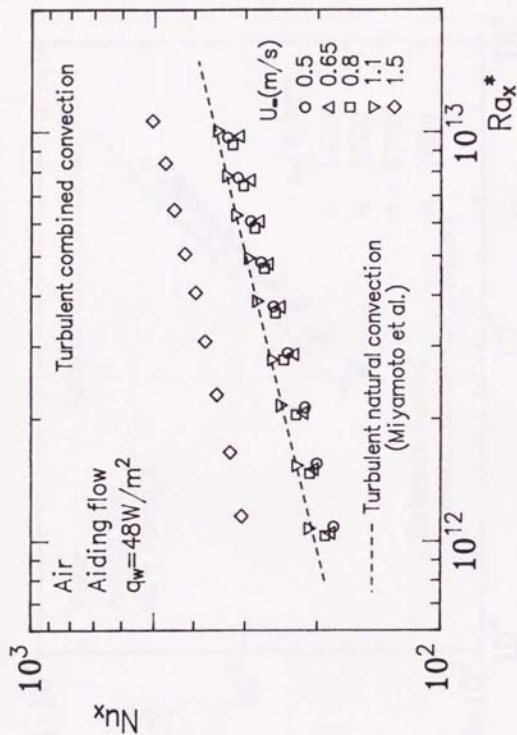 10³
Nuₓ
10²
Air
Aiding flow
q_w=48W/m²
Turbulent combined convection
U∞(m/s)
○ 0.5
△ 0.65
□ 0.8
▽ 1.1
◇ 1.5
----- Turbulent natural convection
(Miyamoto et al.)
10¹²
10¹³
Raₓ*